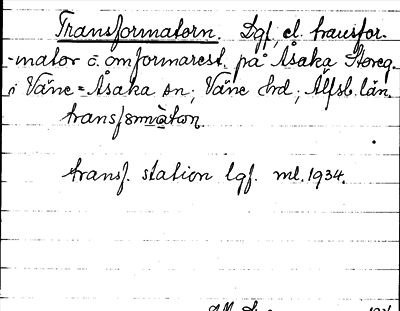 Transformatorn. Lgf, el. transfor-
-mator o. omformarest. på Åsaka Storeg.
i Väne-Åsaka sn; Väne hd; Älfsb. län.
transformàton.
transf. station lgf. ml. 1934.